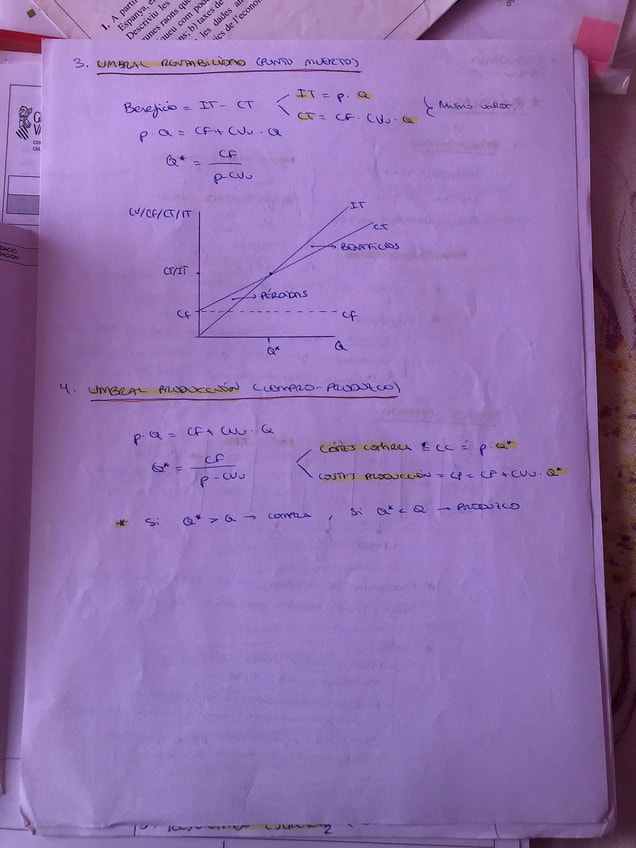 1. A partir
Espanya, e
Descriviu le
unes raons que
gueu com pod
ons; b) taxes de
les dades, am
ics de l'econo
3. UMBRAL RENTABILIDAD (PUNTO MUERTO)
Beneficio = IT - CT
IT = p. Q
CT = CF. CVu. Q
Mismo valor.
p. Q = CF + CVu. Q
Q* = CF / p-CVu
CV/CF/CT/IT
IT
CT
BENEFICIOS
CT/IT
PÉRDIDAS
CF
CF
Q*
Q
4. UMBRAL PRODUCCIÓN (COMPRO-PRODUZCO)
p. Q = CF + CVu. Q
Q* = CF / p-CVu
COSTES COMPRA = CC = p. Q*
COSTES PRODUCCIÓN = CP = CF + CVu. Q*
* Si Q* > Q → COMPRA, Si Q* < Q → PRODUZCO